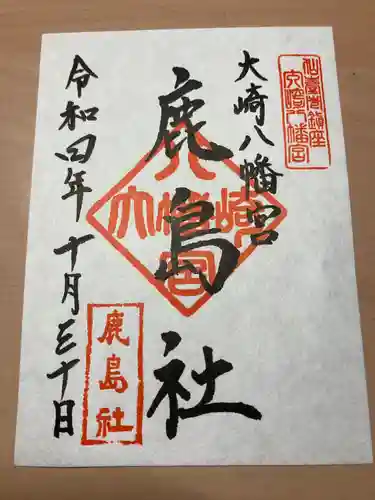 仙臺市鎮座
大崎八幡宮
大崎八幡宮
鹿島社
大崎八幡宮
令和四年十月三十日
鹿島社